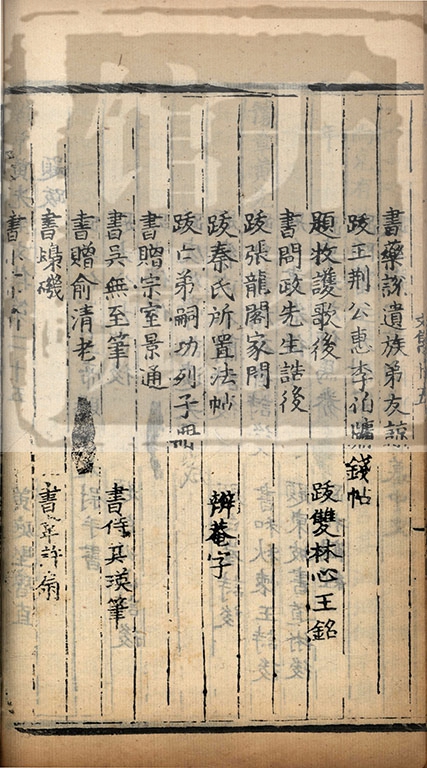 書藥說遺族弟友諒
跋王荊公惠李伯牖錢帖
題牧護歌後　跋雙林心王銘
書問政先生誥後
跋張龍閣家問
跋秦氏所置法帖　辨菴字
跋亡弟嗣功列子冊
書贈宗室景通
書吳無至筆　書侍其瑛筆
書贈俞清老
書磯　書許扇
書